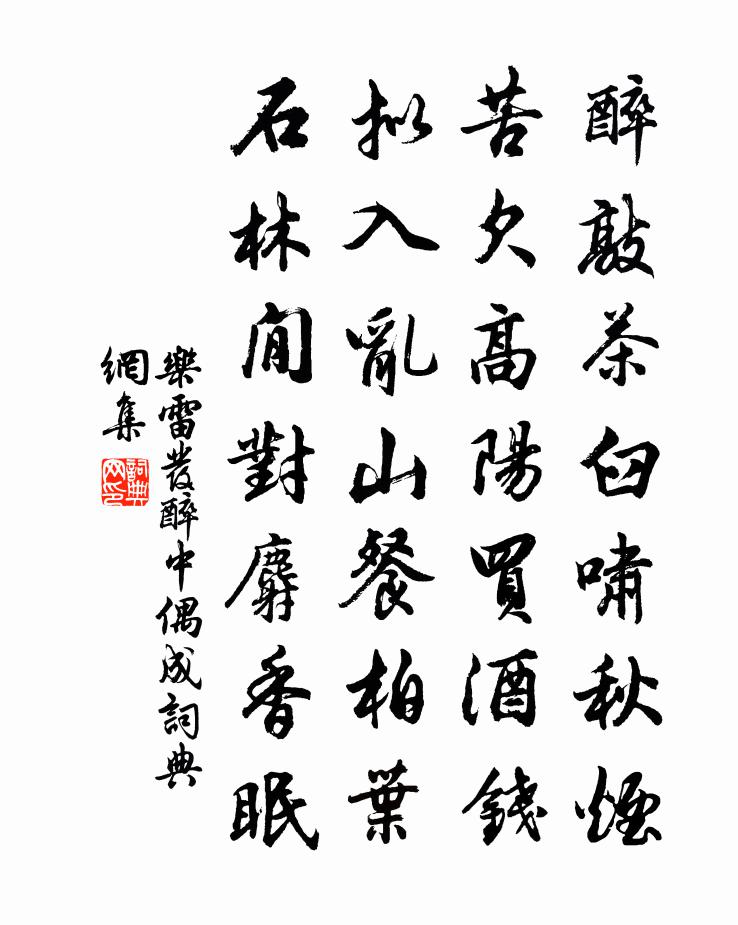 醉敲茶臼嘯秋煙
苦欠高陽買酒錢
拟入亂山餐柏葉
石林閒對麝香眠
樂雷發醉中偶成詞典
網集
詞典網印